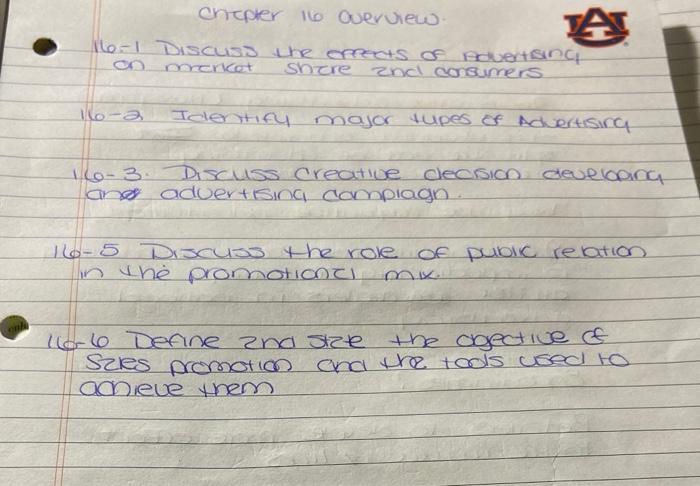 Chapter 16 overview.
AU
16-1 Discuss the effects of Advertising
on market share and consumers
16-2 Identify major types of Advertising
16-3. Discuss creative decision developing
and advertising campiagn.
16-5 Discuss the role of public relation
in the promotional mix.
16-6 Define and state the ogective of
Sales promotion and the tools used to
achieve them